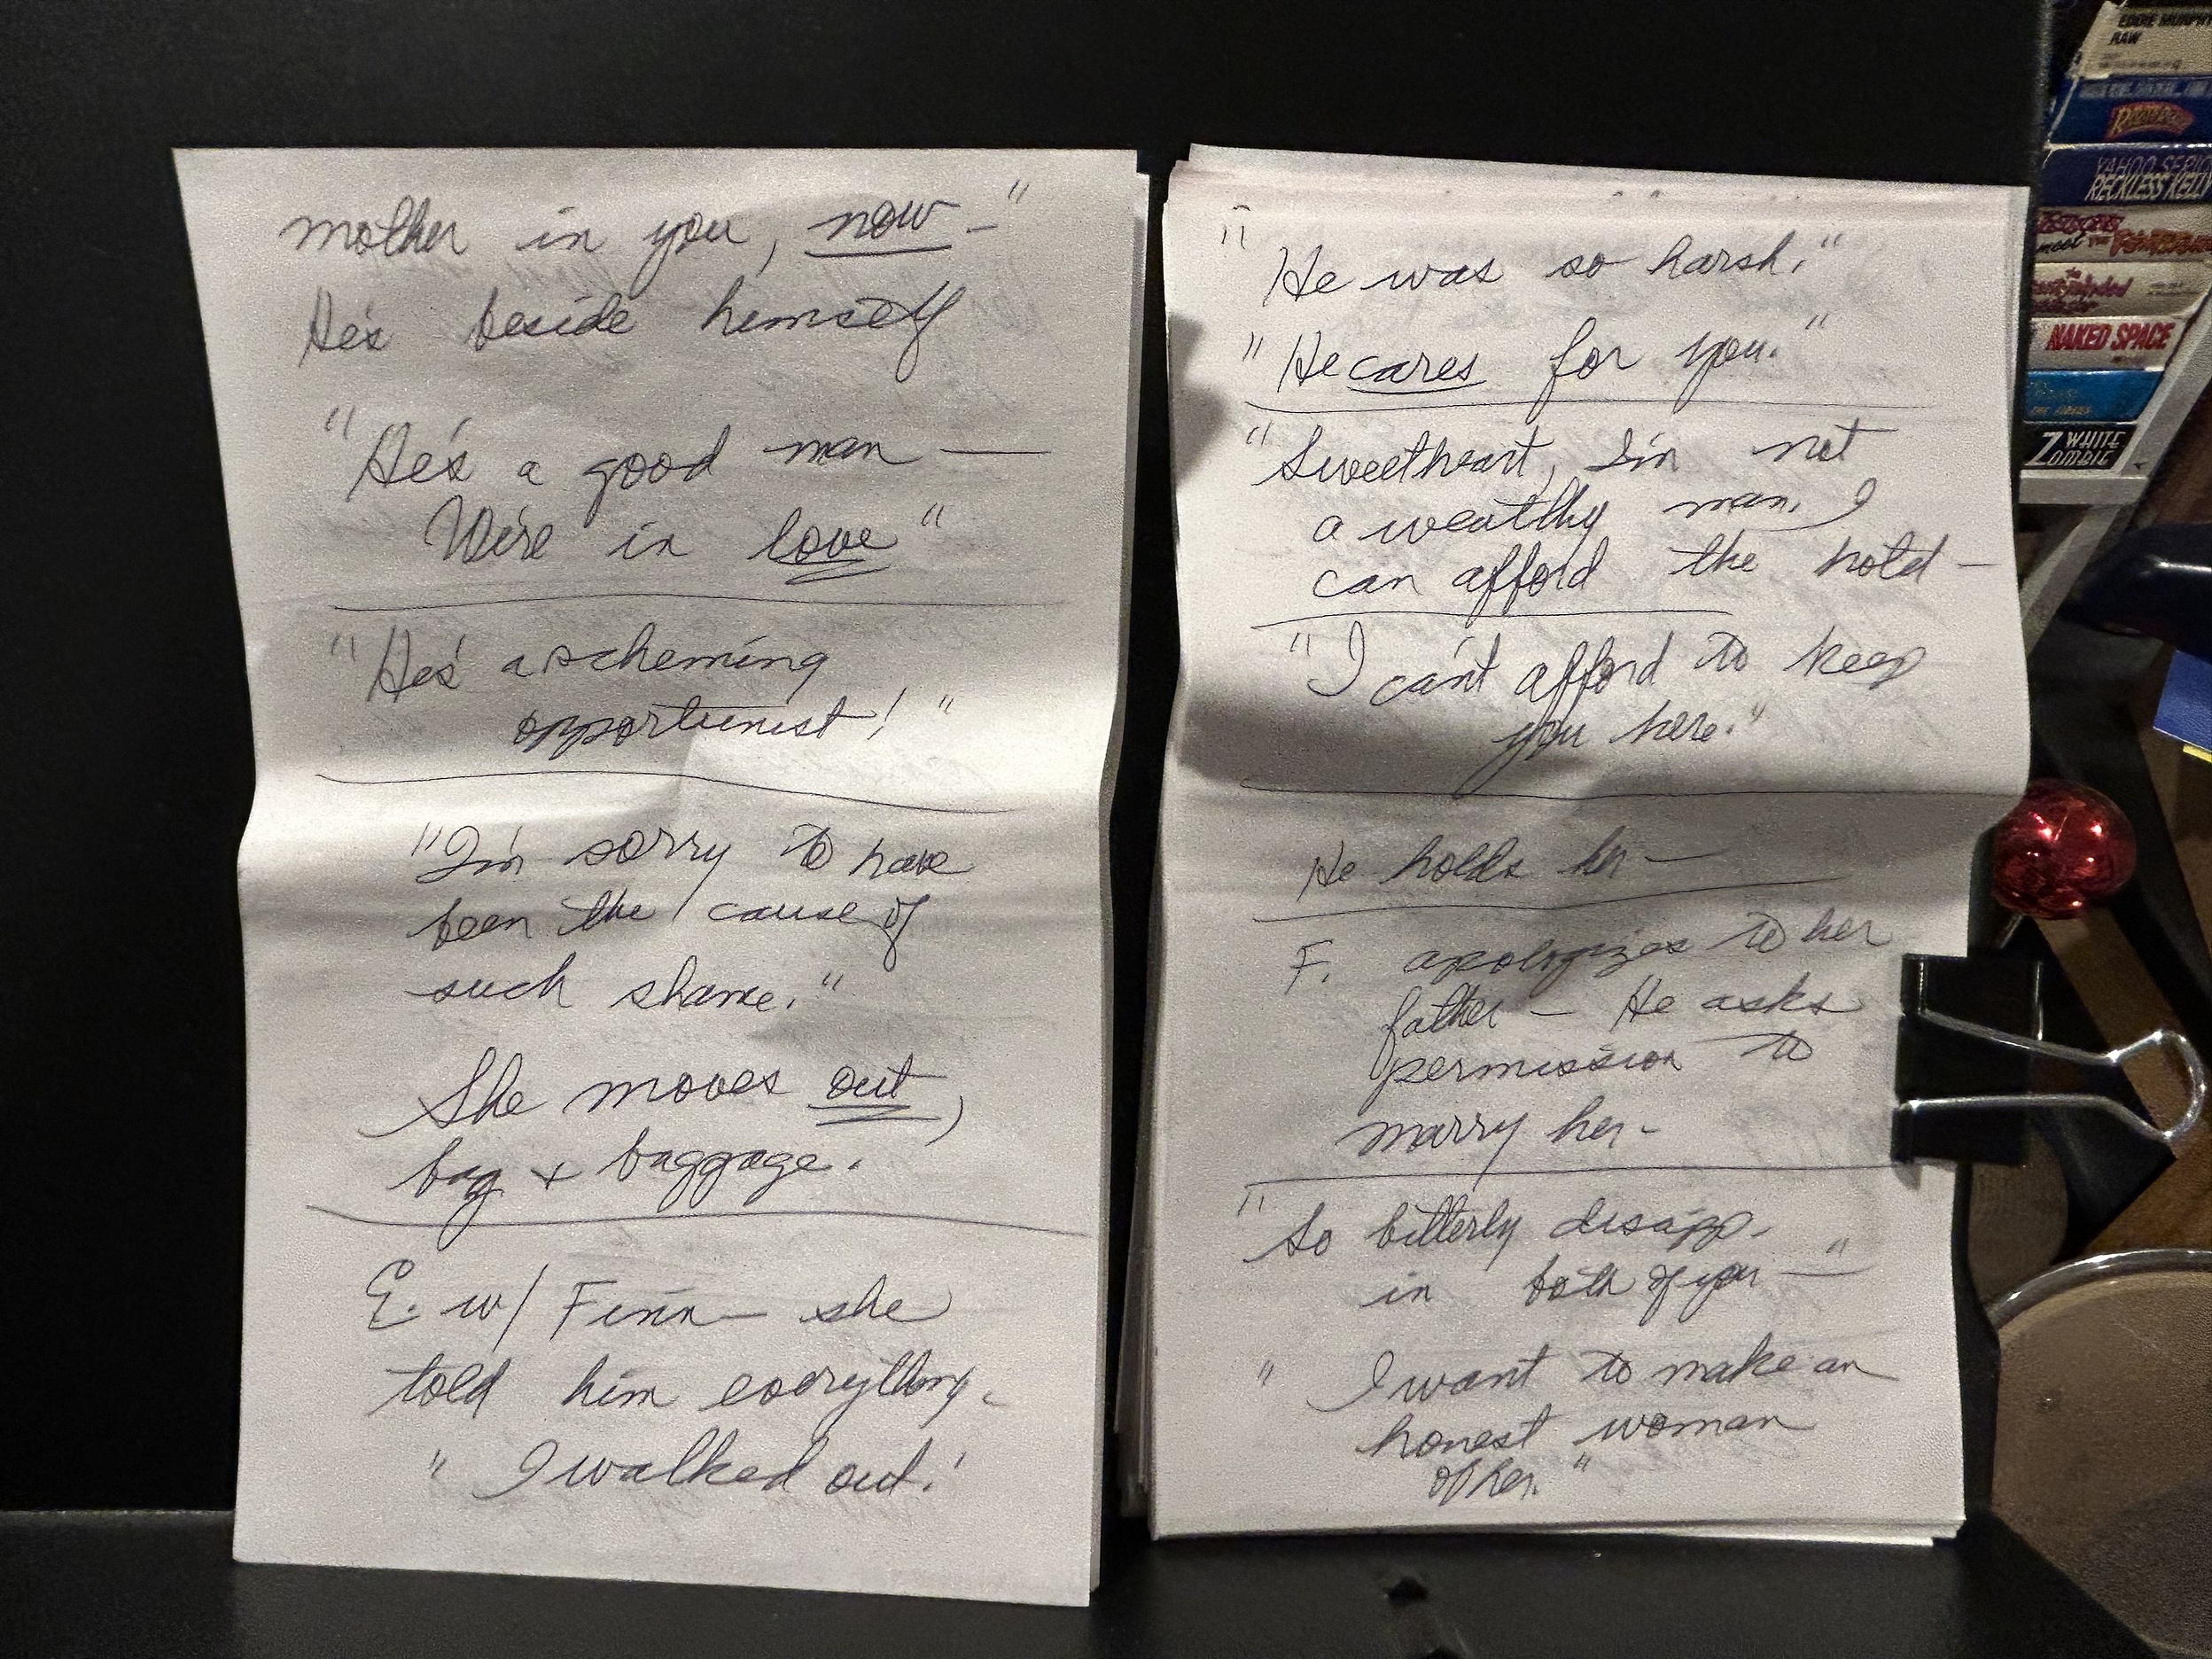 mother in you, now —"
He's beside himself
"He's a good man —
We're in love"
"He's a scheming
opportunist!"
"I'm sorry to have
been the cause of
such shame."
She moves out,
bag + baggage.
E. w/ Finn — she
told him everything.
"I walked out.'
"He was so harsh."
"He cares for you."
"Sweetheart, I'm not
a wealthy man. I
can afford the hotel —
"I can't afford to keep
you here."
He holds her —
F. apologizes to her
father — He asks
permission to
marry her -
"So bitterly disapp.
in both of you —"
" I want to make an
honest woman
of her."
EDDIE MURPHY
RAW
YAHOO SERIOUS
RECKLESS KELLY
meet the
NAKED SPACE
WHITE
ZOMBIE